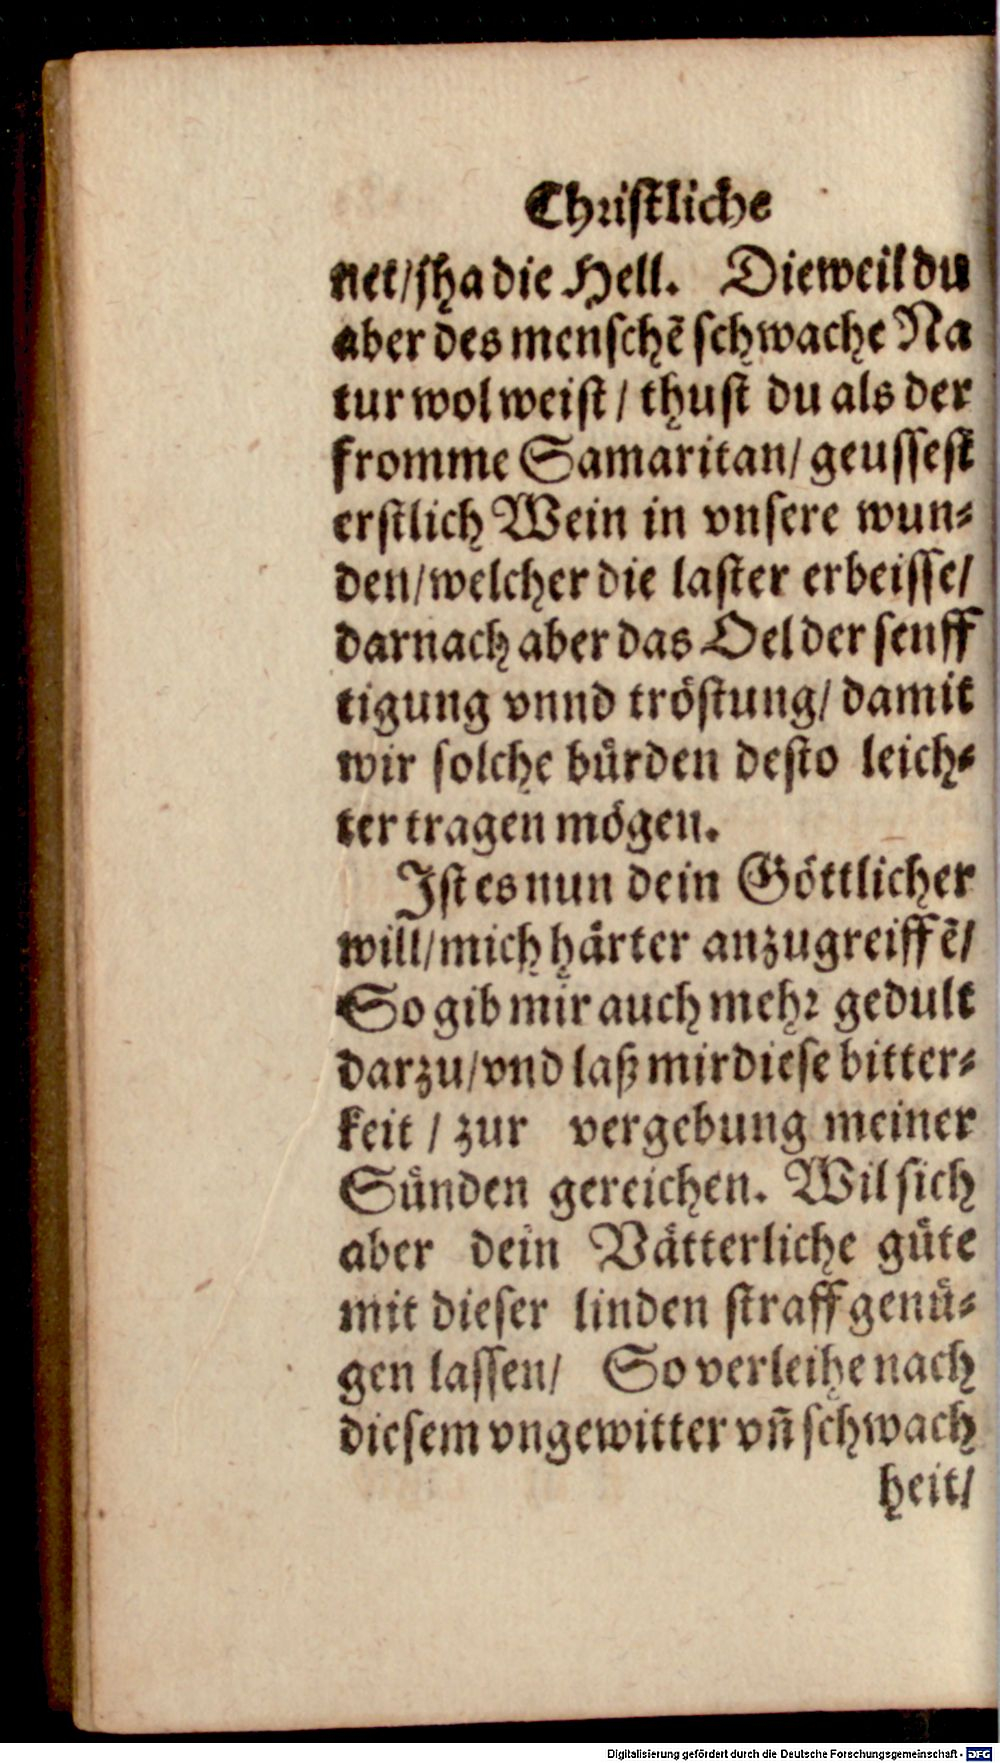 Christliche
net/jha die Hell. Dieweil du
aber des menschẽ schwache Na
tur wol weist / thust du als der
fromme Samaritan/ geussest
erstlich Wein in vnsere wun⸗
den/welcher die laster erbeisse/
darnach aber das Oel der senff
tigung vnnd tröstung/ damit
wir solche bürden desto leich⸗
ter tragen mögen.
Ist es nun dein Göttlicher
will/mich härter anzugreiffẽ/
So gib mir auch mehr gedult
darzu/vnd laß mir diese bitter⸗
keit / zur vergebung meiner
Sünden gereichen. Wil sich
aber dein Vätterliche güte
mit dieser linden straff genü⸗
gen lassen/ So verleihe nach
diesem vngewitter vñ schwach
heit/
Digitalisierung gefördert durch die Deutsche Forschungsgemeinschaft - DFG